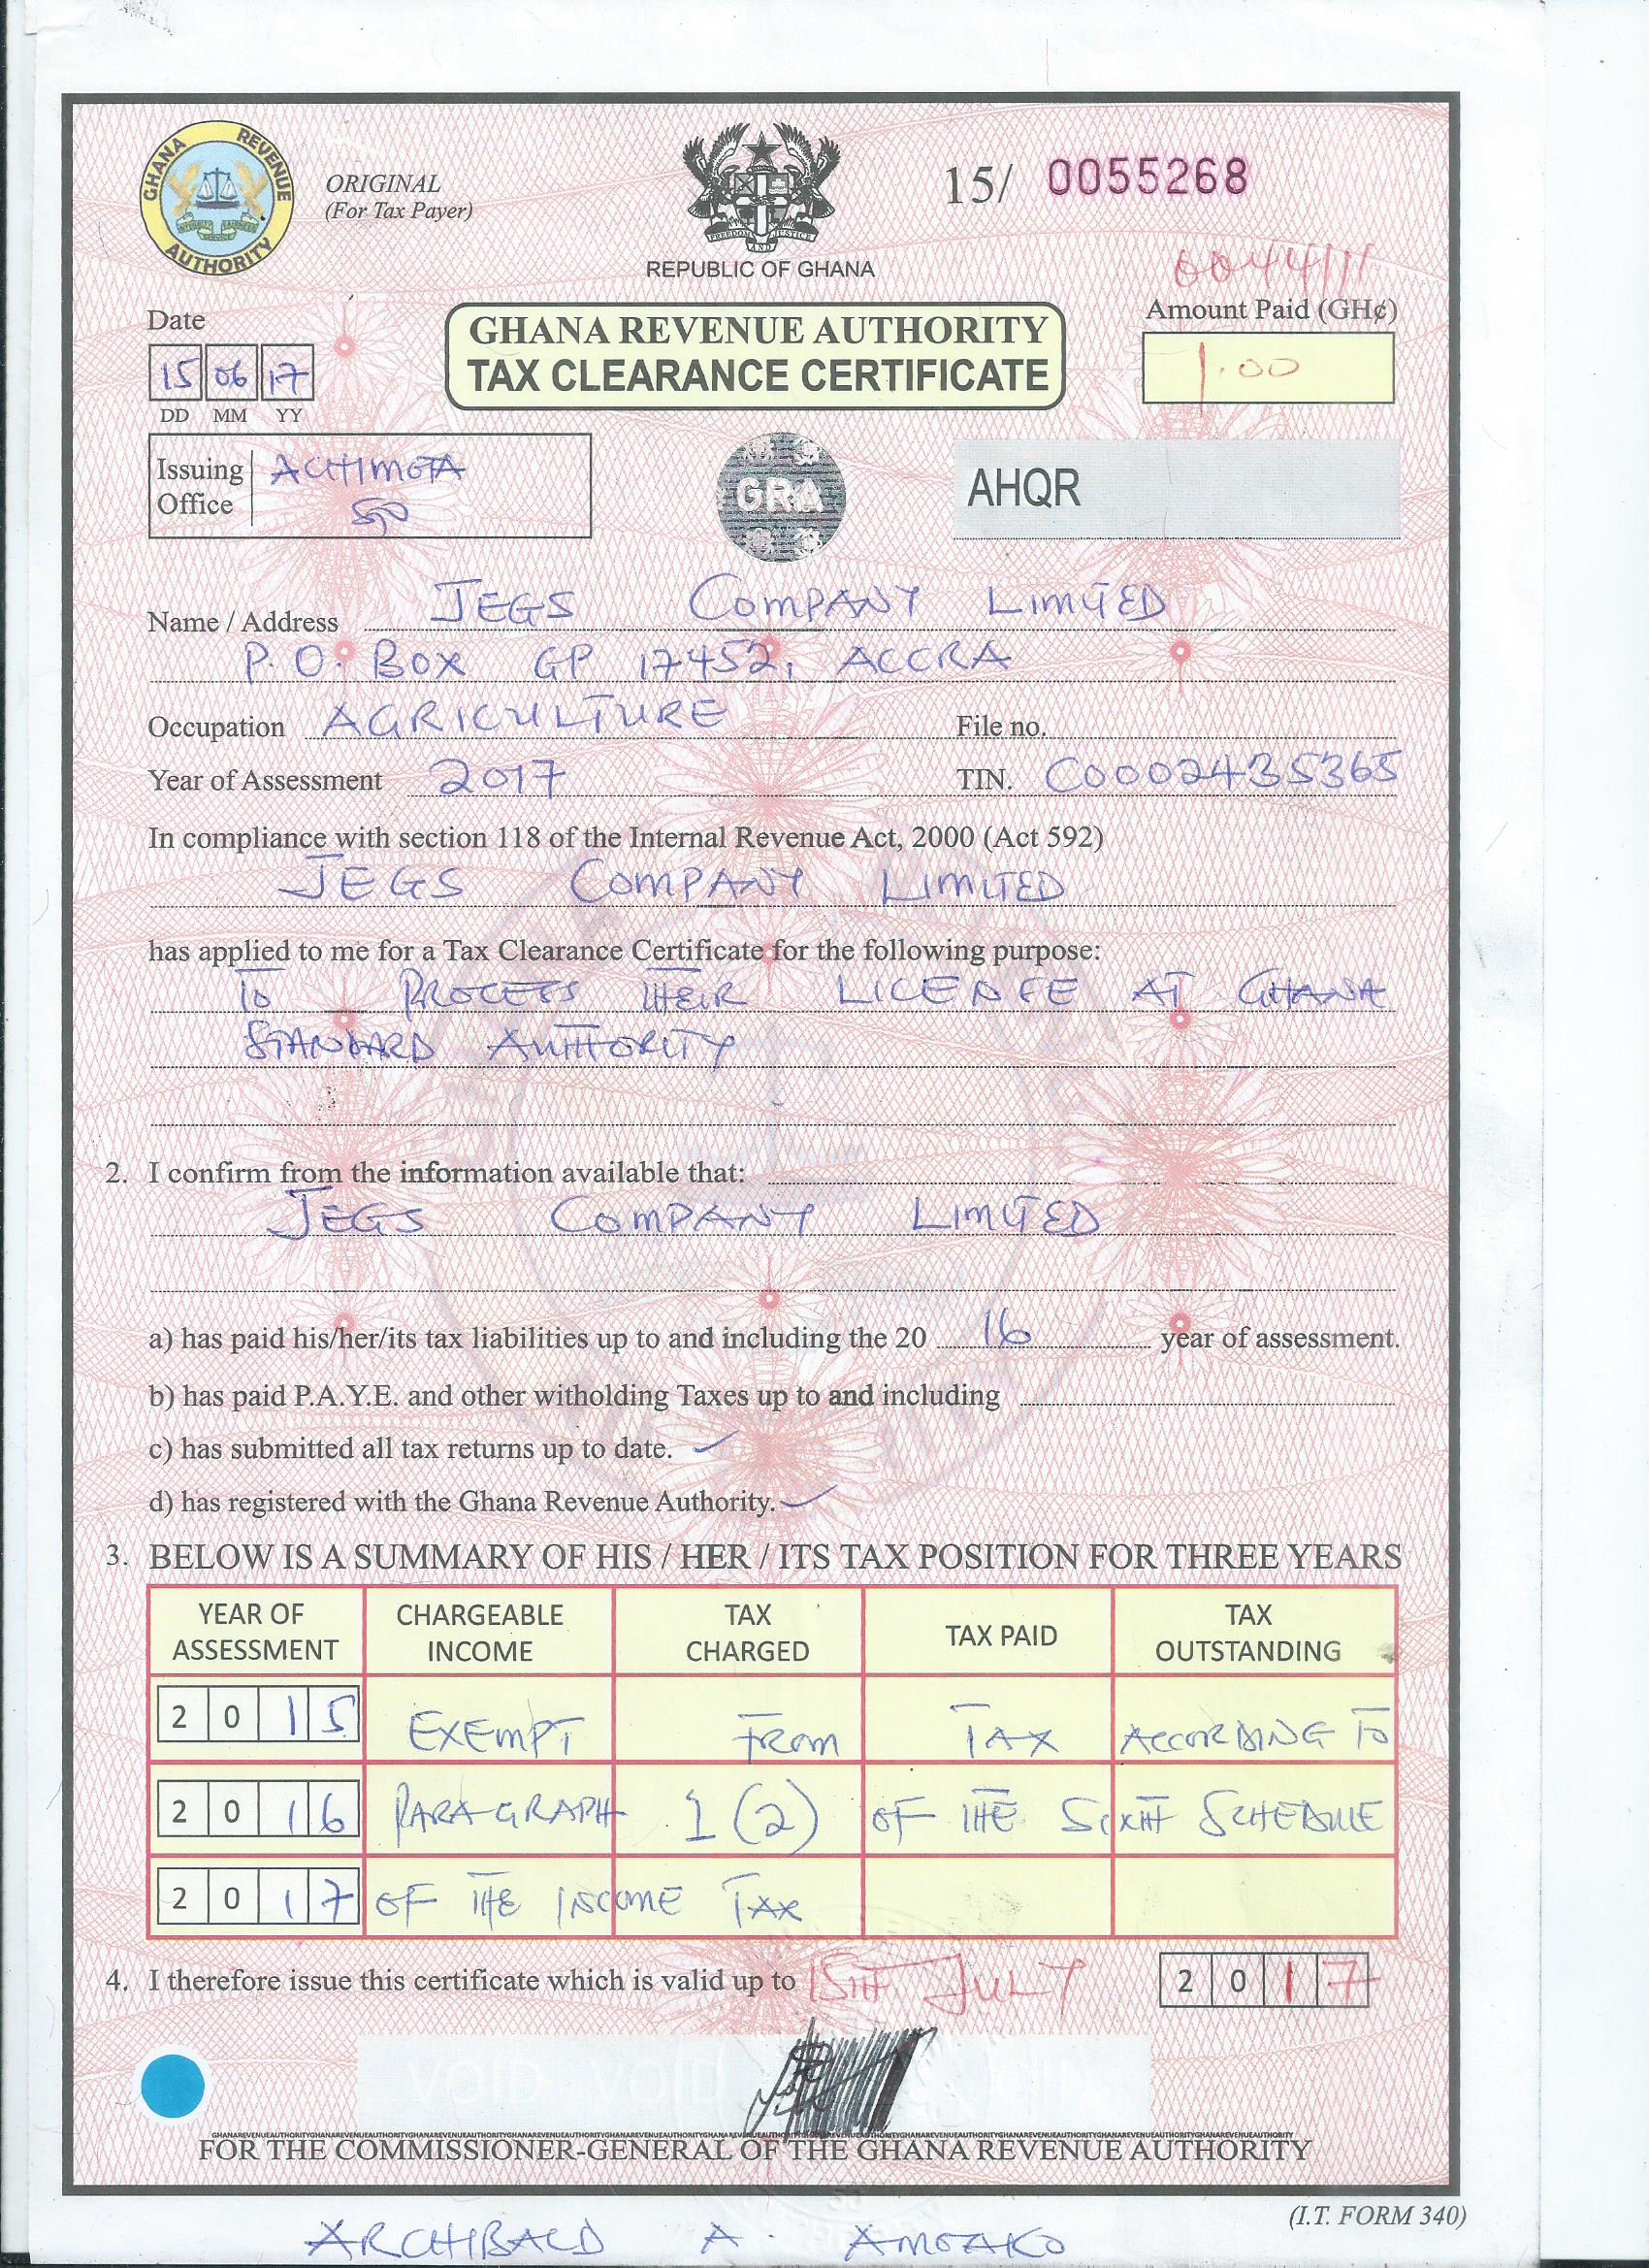 GHANA REVENUE AUTHORITY
ORIGINAL
(For Tax Payer)
FREEDOM AND JUSTICE
REPUBLIC OF GHANA
15/ 0055268
0044111
Date
15 06 17
DD MM YY
GHANA REVENUE AUTHORITY
TAX CLEARANCE CERTIFICATE
Amount Paid (GH¢)
1.00
Issuing Office ACHIMOTA
GRA
AHQR
Name / Address JEGS COMPANY LIMITED
P.O. BOX GP 17452, ACCRA
Occupation AGRICULTURE File no.
Year of Assessment 2017 TIN. C0002435365
In compliance with section 118 of the Internal Revenue Act, 2000 (Act 592)
JEGS COMPANY LIMITED
has applied to me for a Tax Clearance Certificate for the following purpose:
TO PROCESS THEIR LICENSE AT GHANA
STANDARD AUTHORITY
2. I confirm from the information available that:
JEGS COMPANY LIMITED
a) has paid his/her/its tax liabilities up to and including the 20 16 year of assessment.
b) has paid P.A.Y.E. and other witholding Taxes up to and including
c) has submitted all tax returns up to date. ✓
d) has registered with the Ghana Revenue Authority. ✓
3. BELOW IS A SUMMARY OF HIS / HER / ITS TAX POSITION FOR THREE YEARS
YEAR OF ASSESSMENT CHARGEABLE INCOME TAX CHARGED TAX PAID TAX OUTSTANDING
2015 EXEMPT FROM TAX ACCORDING TO
2016 PARAGRAPH 1 (2) OF THE SIXTH SCHEDULE
2017 OF THE INCOME TAX
4. I therefore issue this certificate which is valid up to 15TH JULY 2017
FOR THE COMMISSIONER-GENERAL OF THE GHANA REVENUE AUTHORITY
(I.T. FORM 340)
ARCHIBALD A. AMOAKO